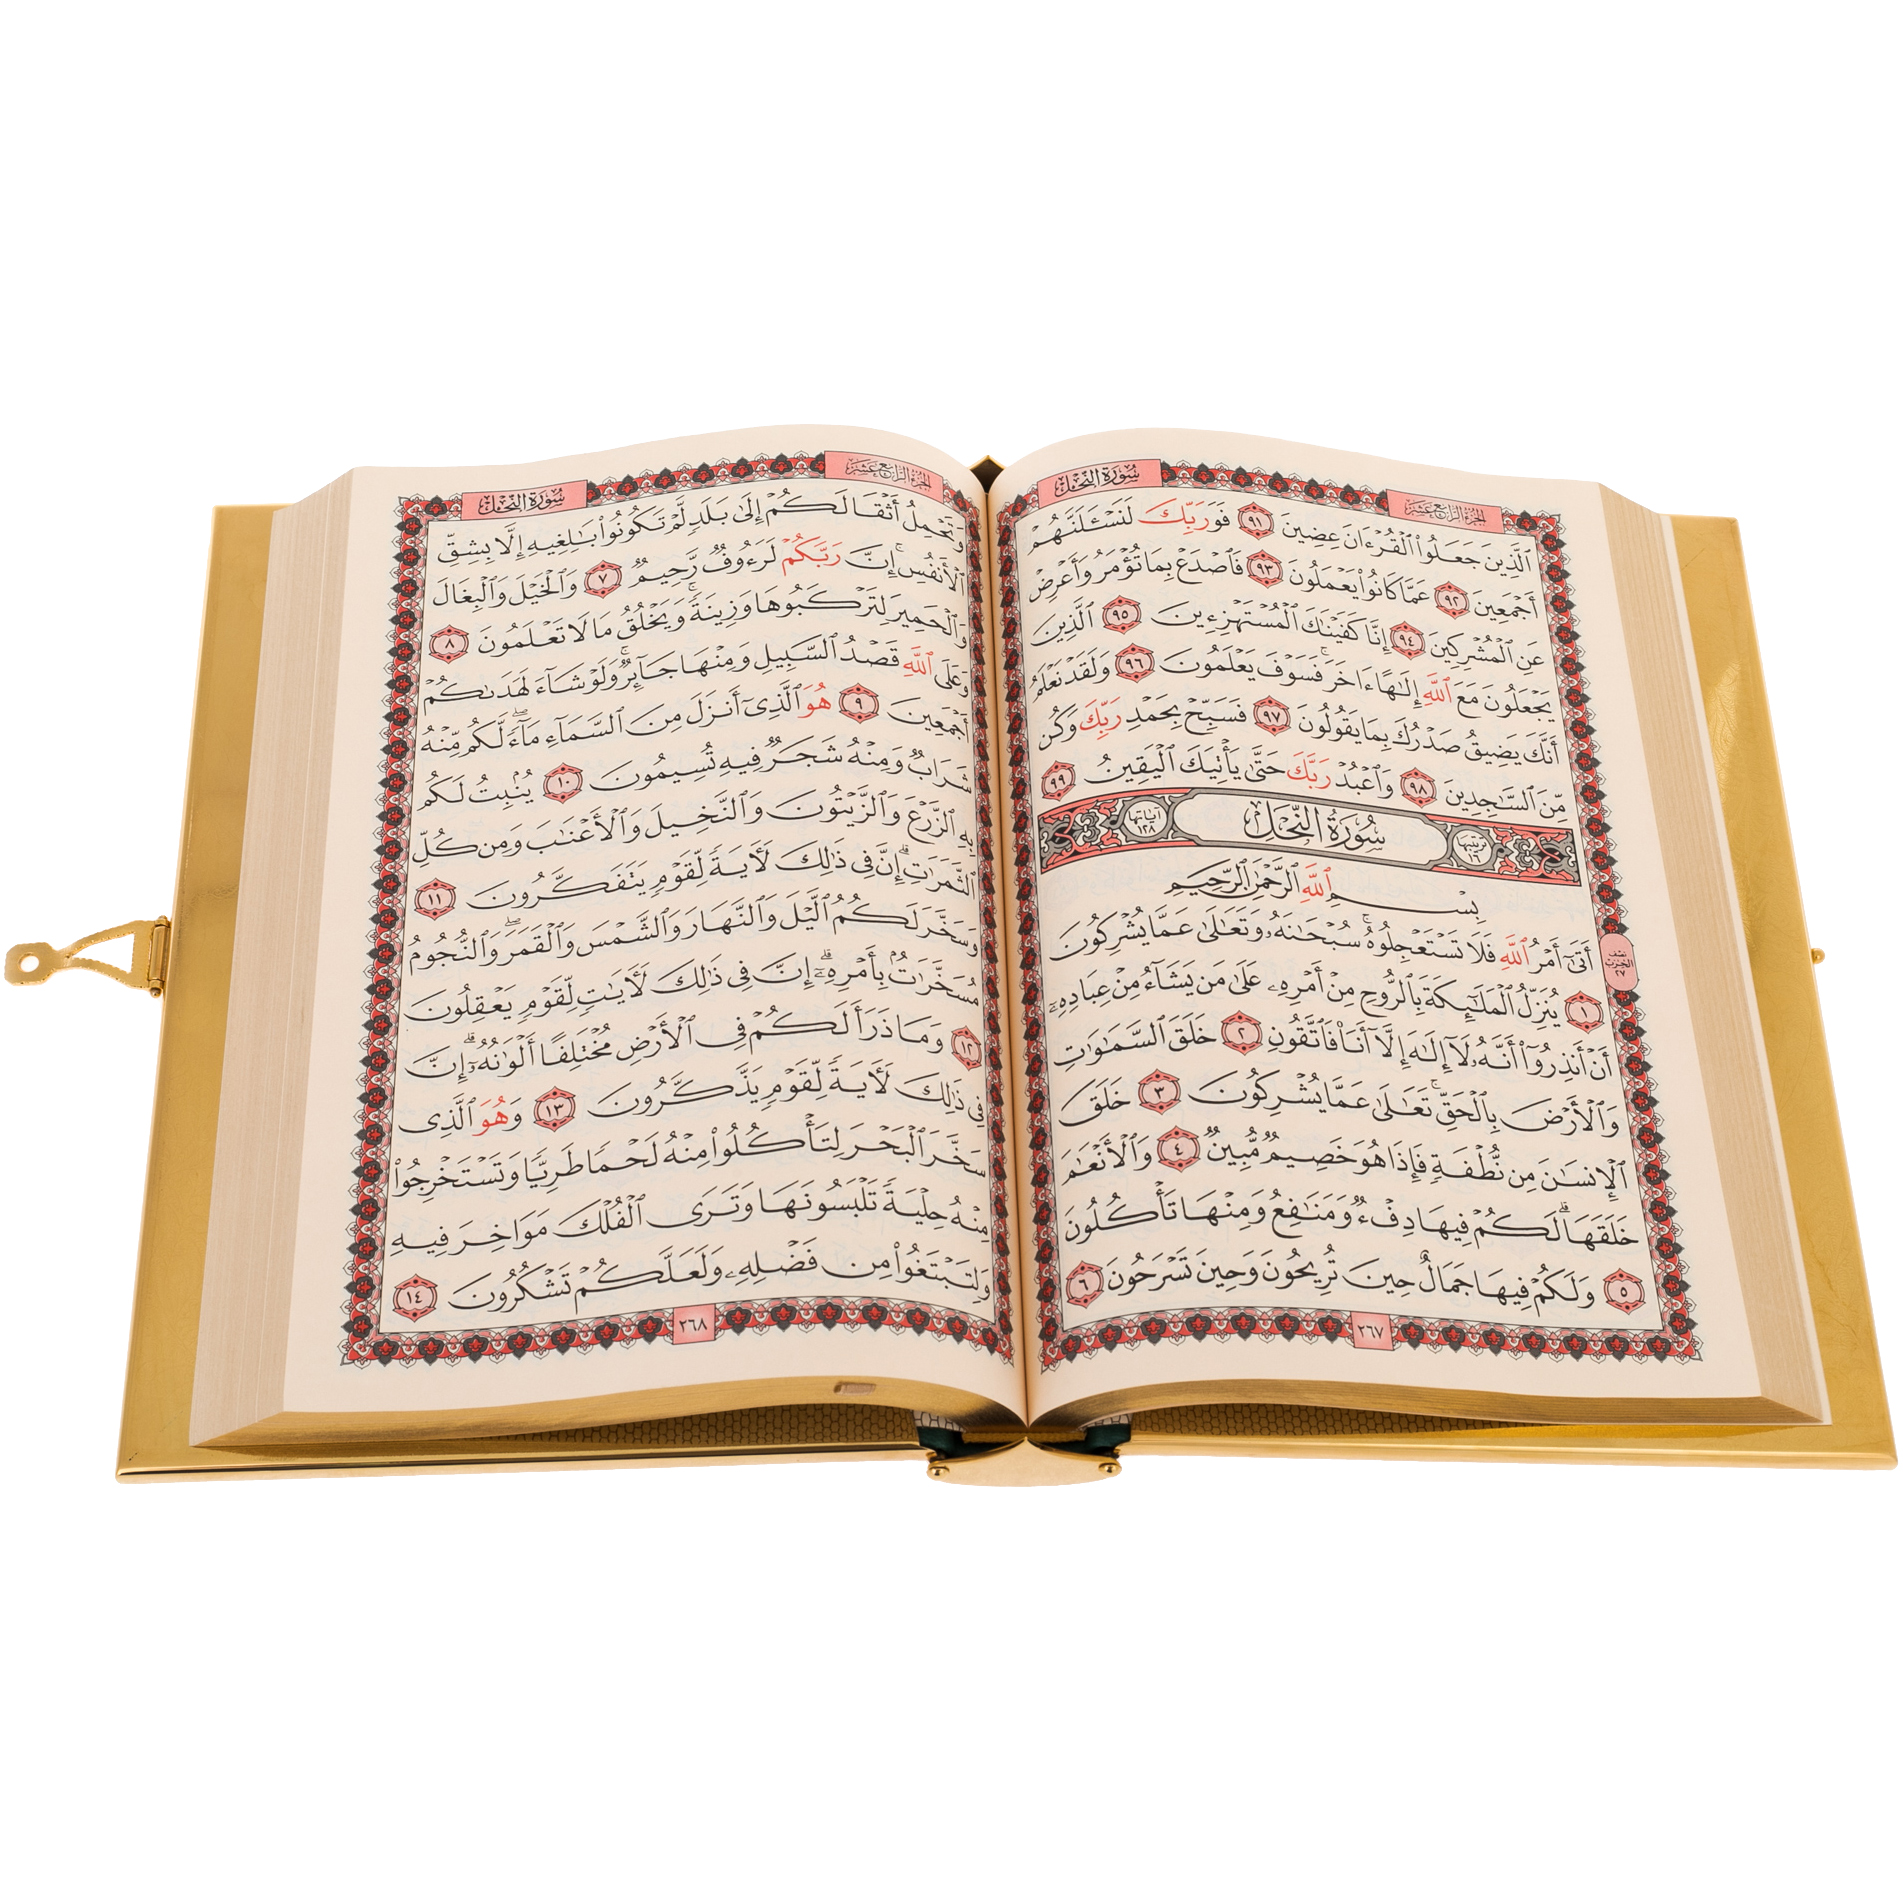 الجزء الرابع عشر
سورة النحل
ٱلَّذِينَ جَعَلُوا۟ ٱلْقُرْءَانَ عِضِينَ ٩١ فَوَرَبِّكَ لَنَسْـَٔلَنَّهُمْ
أَجْمَعِينَ ٩٢ عَمَّا كَانُوا۟ يَعْمَلُونَ ٩٣ فَٱصْدَعْ بِمَا تُؤْمَرُ وَأَعْرِضْ
عَنِ ٱلْمُشْرِكِينَ ٩٤ إِنَّا كَفَيْنَٰكَ ٱلْمُسْتَهْزِءِينَ ٩٥ ٱلَّذِينَ
يَجْعَلُونَ مَعَ ٱللَّهِ إِلَٰهًا ءَاخَرَ ۚ فَسَوْفَ يَعْلَمُونَ ٩٦ وَلَقَدْ نَعْلَمُ
أَنَّكَ يَضِيقُ صَدْرُكَ بِمَا يَقُولُونَ ٩٧ فَسَبِّحْ بِحَمْدِ رَبِّكَ وَكُن
مِّنَ ٱلسَّٰجِدِينَ ٩٨ وَٱعْبُدْ رَبَّكَ حَتَّىٰ يَأْتِيَكَ ٱلْيَقِينُ ٩٩
ترتيبها ١٦ سُورَةُ النَّحْلِ آياتها ١٢٨
بِسْمِ ٱللَّهِ ٱلرَّحْمَٰنِ ٱلرَّحِيمِ
أَتَىٰٓ أَمْرُ ٱللَّهِ فَلَا تَسْتَعْجِلُوهُ ۚ سُبْحَٰنَهُۥ وَتَعَٰلَىٰ عَمَّا يُشْرِكُونَ
نصف الحزب ٢٧
١ يُنَزِّلُ ٱلْمَلَٰٓئِكَةَ بِٱلرُّوحِ مِنْ أَمْرِهِۦ عَلَىٰ مَن يَشَآءُ مِنْ عِبَادِهِۦٓ
أَنْ أَنذِرُوٓا۟ أَنَّهُۥ لَآ إِلَٰهَ إِلَّآ أَنَا۠ فَٱتَّقُونِ ٢ خَلَقَ ٱلسَّمَٰوَٰتِ
وَٱلْأَرْضَ بِٱلْحَقِّ ۚ تَعَٰلَىٰ عَمَّا يُشْرِكُونَ ٣ خَلَقَ
ٱلْإِنسَٰنَ مِن نُّطْفَةٍ فَإِذَا هُوَ خَصِيمٌ مُّبِينٌ ٤ وَٱلْأَنْعَٰمَ
خَلَقَهَا ۗ لَكُمْ فِيهَا دِفْءٌ وَمَنَٰفِعُ وَمِنْهَا تَأْكُلُونَ
٥ وَلَكُمْ فِيهَا جَمَالٌ حِينَ تُرِيحُونَ وَحِينَ تَسْرَحُونَ ٦
٢٦٧
الجزء الرابع عشر
سورة النحل
وَتَحْمِلُ أَثْقَالَكُمْ إِلَىٰ بَلَدٍ لَّمْ تَكُونُوا۟ بَٰلِغِيهِ إِلَّا بِشِقِّ
ٱلْأَنفُسِ ۚ إِنَّ رَبَّكُمْ لَرَءُوفٌ رَّحِيمٌ ٧ وَٱلْخَيْلَ وَٱلْبِغَالَ
وَٱلْحَمِيرَ لِتَرْكَبُوهَا وَزِينَةً ۚ وَيَخْلُقُ مَا لَا تَعْلَمُونَ ٨
وَعَلَى ٱللَّهِ قَصْدُ ٱلسَّبِيلِ وَمِنْهَا جَآئِرٌ ۚ وَلَوْ شَآءَ لَهَدَىٰكُمْ
أَجْمَعِينَ ٩ هُوَ ٱلَّذِىٓ أَنزَلَ مِنَ ٱلسَّمَآءِ مَآءً ۖ لَّكُم مِّنْهُ
شَرَابٌ وَمِنْهُ شَجَرٌ فِيهِ تُسِيمُونَ ١٠ يُنۢبِتُ لَكُم
بِهِ ٱلزَّرْعَ وَٱلزَّيْتُونَ وَٱلنَّخِيلَ وَٱلْأَعْنَٰبَ وَمِن كُلِّ
ٱلثَّمَرَٰتِ ۗ إِنَّ فِى ذَٰلِكَ لَـَٔايَةً لِّقَوْمٍ يَتَفَكَّرُونَ ١١
وَسَخَّرَ لَكُمُ ٱلَّيْلَ وَٱلنَّهَارَ وَٱلشَّمْسَ وَٱلْقَمَرَ ۖ وَٱلنُّجُومُ
مُسَخَّرَٰتٌۢ بِأَمْرِهِۦٓ ۗ إِنَّ فِى ذَٰلِكَ لَـَٔايَٰتٍ لِّقَوْمٍ يَعْقِلُونَ
١٢ وَمَا ذَرَأَ لَكُمْ فِى ٱلْأَرْضِ مُخْتَلِفًا أَلْوَٰنُهُۥٓ ۗ إِنَّ
فِى ذَٰلِكَ لَـَٔايَةً لِّقَوْمٍ يَذَّكَّرُونَ ١٣ وَهُوَ ٱلَّذِى
سَخَّرَ ٱلْبَحْرَ لِتَأْكُلُوا۟ مِنْهُ لَحْمًا طَرِيًّا وَتَسْتَخْرِجُوا۟
مِنْهُ حِلْيَةً تَلْبَسُونَهَا وَتَرَى ٱلْفُلْكَ مَوَاخِرَ فِيهِ
وَلِتَبْتَغُوا۟ مِن فَضْلِهِۦ وَلَعَلَّكُمْ تَشْكُرُونَ ١٤
٢٦٨